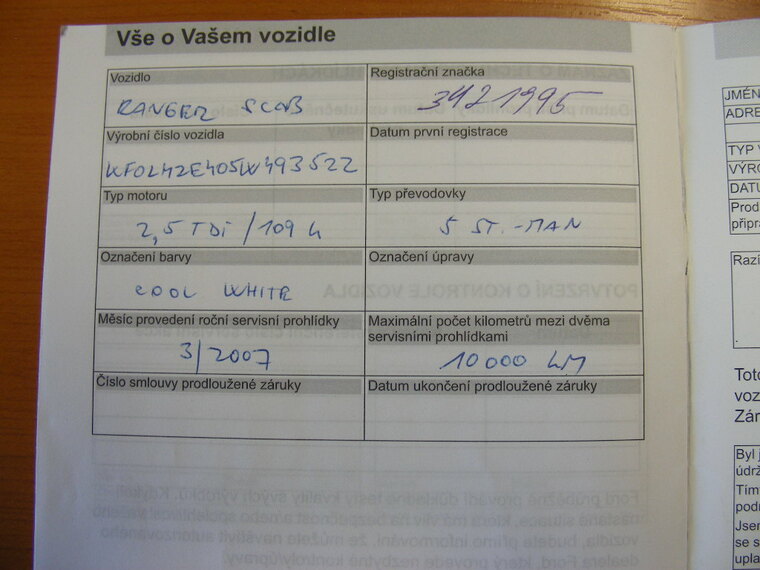 Vše o Vašem vozidle
Vozidlo
RANGER SCAB
Registrační značka
3421995
Výrobní číslo vozidla
WF0L42E405W493522
Datum první registrace
Typ motoru
2,5 TDi / 109 k
Typ převodovky
5 ST.-MAN
Označení barvy
COOL WHITE
Označení úpravy
Měsíc provedení roční servisní prohlídky
3/2007
Maximální počet kilometrů mezi dvěma
servisními prohlídkami
10000 KM
Číslo smlouvy prodloužené záruky
Datum ukončení prodloužené záruky
JMÉN
ADRE
TYP V
VÝRO
DATU
Prod
připra
Razí
Toto
voz
Zár
Byl j
údrž
Tím
podr
Jsen
se s
upla